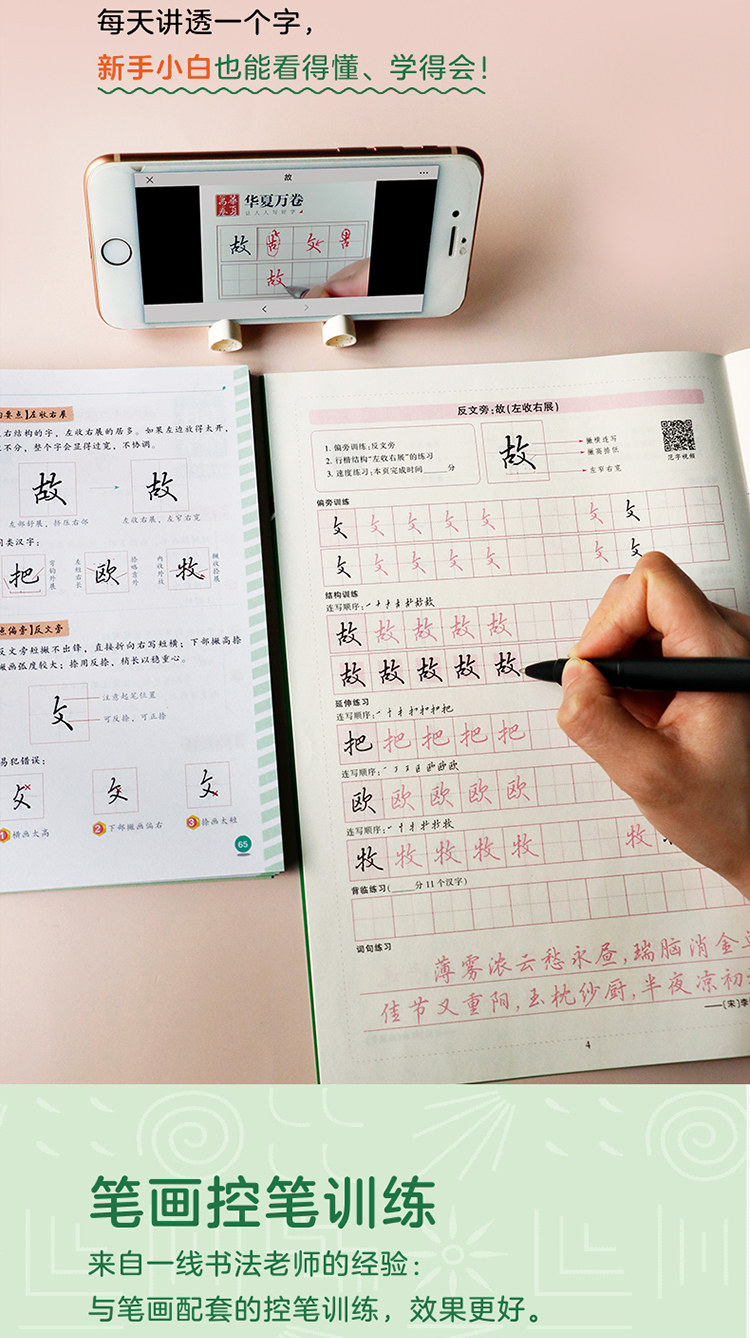 每天讲透一个字，
新手小白也能看得懂、学得会！
故
华夏万卷
让人人写好字
故
故
反文旁：故（左收右展）
1. 偏旁训练：反文旁
2. 行楷结构“左收右展”的练习
3. 速度练习：本页完成时间____分
故
撇横连写
撇高捺低
左窄右宽
范字视频
偏旁训练
攵 攵 攵 攵 攵 攵 攵
攵 攵 攵 攵 攵 攵 攵
结构训练
连写顺序：
故 故 故 故 故
故 故 故 故 故
延伸练习
连写顺序：
把 把 把 把 把
连写顺序：
欧 欧 欧 欧 欧
连写顺序：
牧 牧 牧 牧 牧 牧
背临练习（____分11个汉字）
词句练习
薄雾浓云愁永昼，瑞脑消金
佳节又重阳，玉枕纱厨，半夜凉初
——[宋]李
4
要点】左收右展
右结构的字，左收右展的居多。如果左边放得太开，
不分，整个字会显得过宽，不协调。
故 故
左部舒展，挤压右部
左收右展，左窄右宽
同类汉字：
把 欧 牧
偏旁】反文旁
反文旁短撇不出锋，直接折向右写短横；下部撇高捺
撇画弧度较大；捺用反捺，稍长以稳重心。
攵
注意起笔位置
可反捺，可正捺
易犯错误：
攵 攵 攵
1 横画太高
2 下部撇画偏右
3 捺画太短
65
笔画控笔训练
来自一线书法老师的经验：
与笔画配套的控笔训练，效果更好。